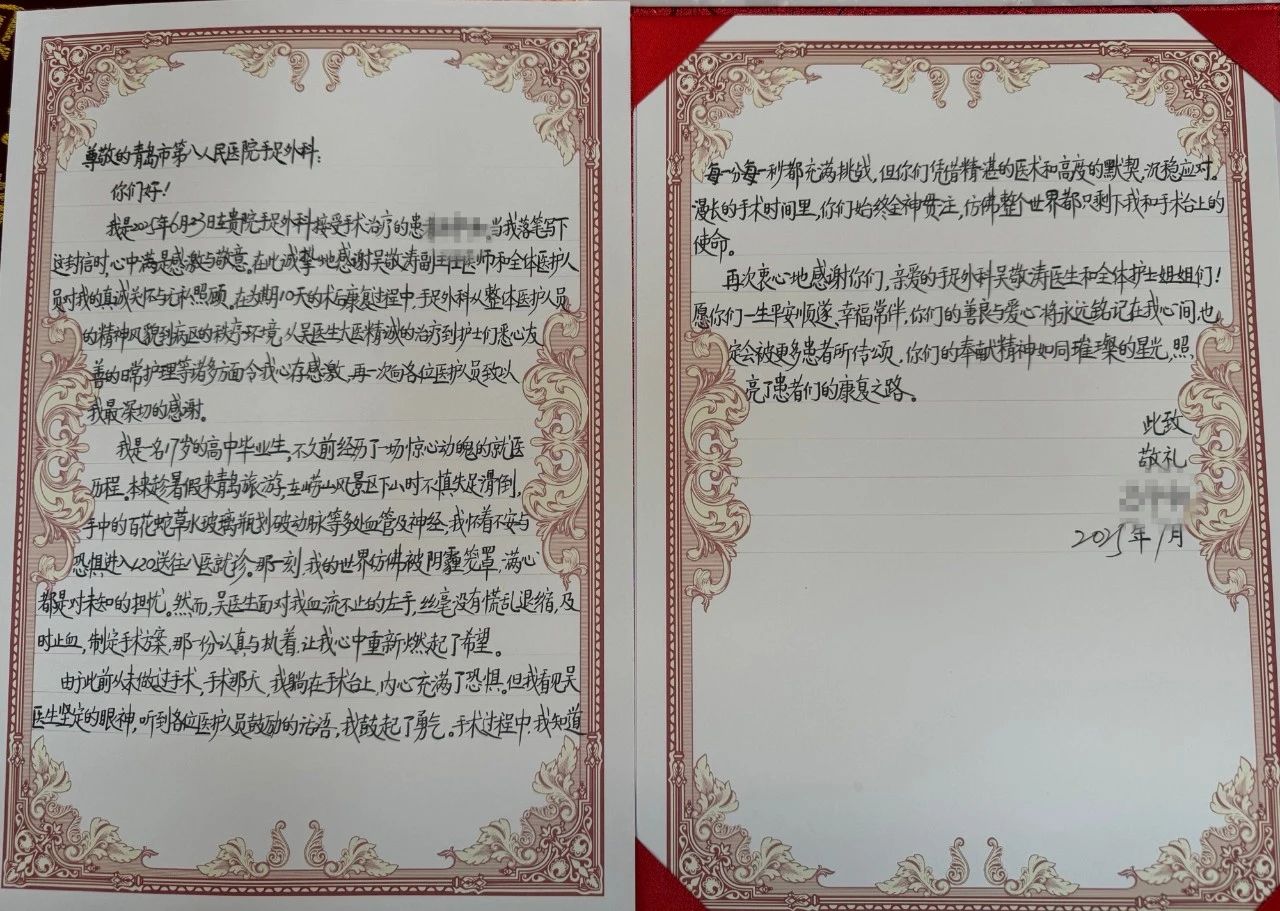 尊敬的青岛市第八人民医院手足外科：
你们好！
我是2025年6月23日在贵院手足外科接受手术治疗的患 当我落笔写下
这封信时，心中满是感激与敬意。在此诚挚地感谢吴敬涛副主任医师和全体医护人
员对我的真诚关怀与无私照顾。在为期10天的术后康复过程中，手足外科从整体医护人员
的精神风貌到病区的秩序环境，从吴医生大医精诚的治疗到护士们悉心友
善的日常护理等诸多方面令我心存感激，再一次向各位医护人员致以
我最深切的感谢。
我是名17岁的高中毕业生，不久前经历了一场惊心动魄的就医
历程。本来趁暑假来青岛旅游，在崂山风景区下山时不慎失足滑倒，
手中的百花蛇草水玻璃瓶划破动脉等多处血管及神经，我怀着不安与
恐惧进入120送往八医就诊。那一刻，我的世界仿佛被阴霾笼罩，满心
都是对未知的担忧。然而，吴医生面对我血流不止的左手，丝毫没有慌乱退缩，及
时止血，制定手术方案，那一份认真与执着，让我心中重新燃起了希望。
由于此前从未做过手术，手术那天，我躺在手术台上，内心充满了恐惧。但我看见吴
医生坚定的眼神，听到各位医护人员鼓励的话语，我鼓起了勇气。手术过程中，我知道
每一分每一秒都充满挑战，但你们凭借精湛的医术和高度的默契，沉稳应对。
漫长的手术时间里，你们始终全神贯注，仿佛整个世界都只剩下我和手术台上的
使命。
再次衷心地感谢你们，亲爱的手足外科吴敬涛医生和全体护士姐姐们！
愿你们一生平安顺遂、幸福常伴，你们的善良与爱心将永远铭记在我心间，也
定会被更多患者所传颂，你们的奉献精神如同璀璨的星光，照
亮了患者们的康复之路。
此致
敬礼
2025年7月